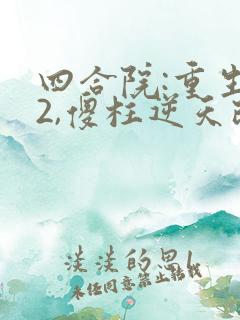 四合院:重生
2,傻柱逆天改
淡淡的墨
未经同意禁止转载